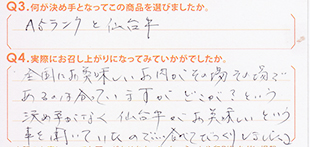 Q3.何が決め手となってこの商品を選びましたか。
A5ランクと仙台牛
Q4.実際にお召し上がりになってみていかがでしたか。
全国に美味しいお肉がその場その場で
あるのは食べていますがどこが？という
決め手がなく仙台牛がお美味しいという
事を聞いていたので…食べてびっくりしました